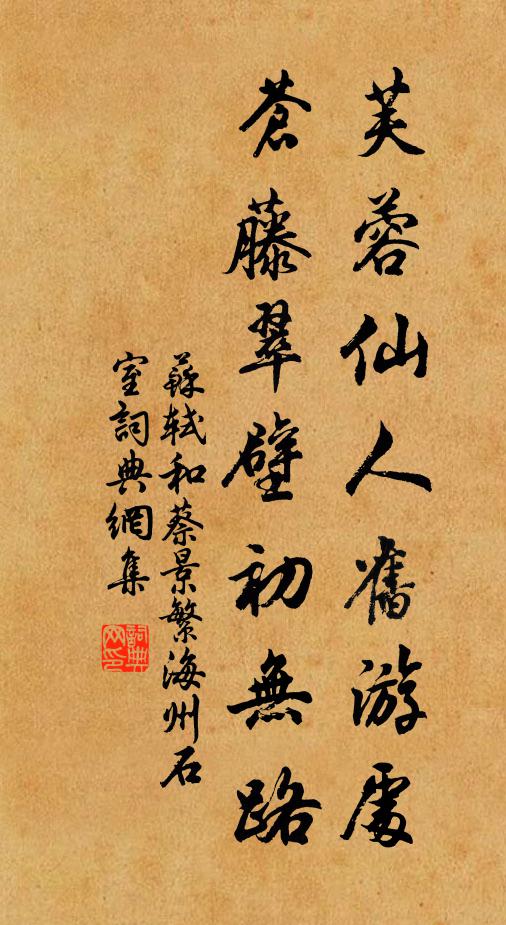 芙蓉仙人舊游處
蒼藤翠壁初無路
蘇軾和蔡景繁海州石
室詞典網集
詞典
网印